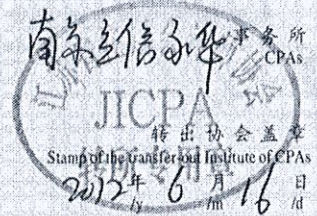 南京立信永华 事务所
CPAs
JICPA
转所专用章
转出协会盖章
Stamp of the transfer-out Institute of CPAs
2012年 6月 16日
/y /m /d